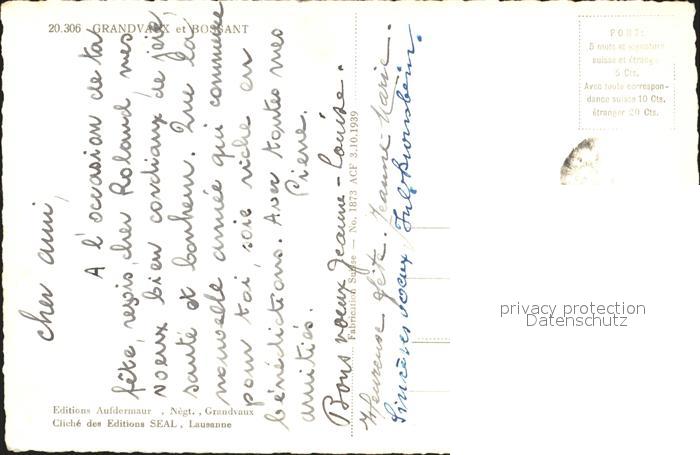 20.306 - GRANDVAUX et BOSSANT
Cher ami,
A l'occasion de ta
fête, reçois, cher Roland, mes
voeux bien cordiaux de joie,
santé et bonheur. Que la
nouvelle année qui commence
pour toi, soit riche en
bénédictions. Avec toutes mes
amitiés. Pierre.
Bons voeux Jeanne-Louise.
Heureuse fête. Jeanne Marie.
Sincères voeux
Fabrication Suisse — No. 1873 ACF 3.10.1939
Editions Aufdermaur , Négt. , Grandvaux
Cliché des Editions SEAL , Lausanne
PORT:
5 mots et signature
suisse et étrang.
5 Cts.
Avec toute correspon-
dance suisse 10 Cts.
étranger 20 Cts.
privacy protection
Datenschutz